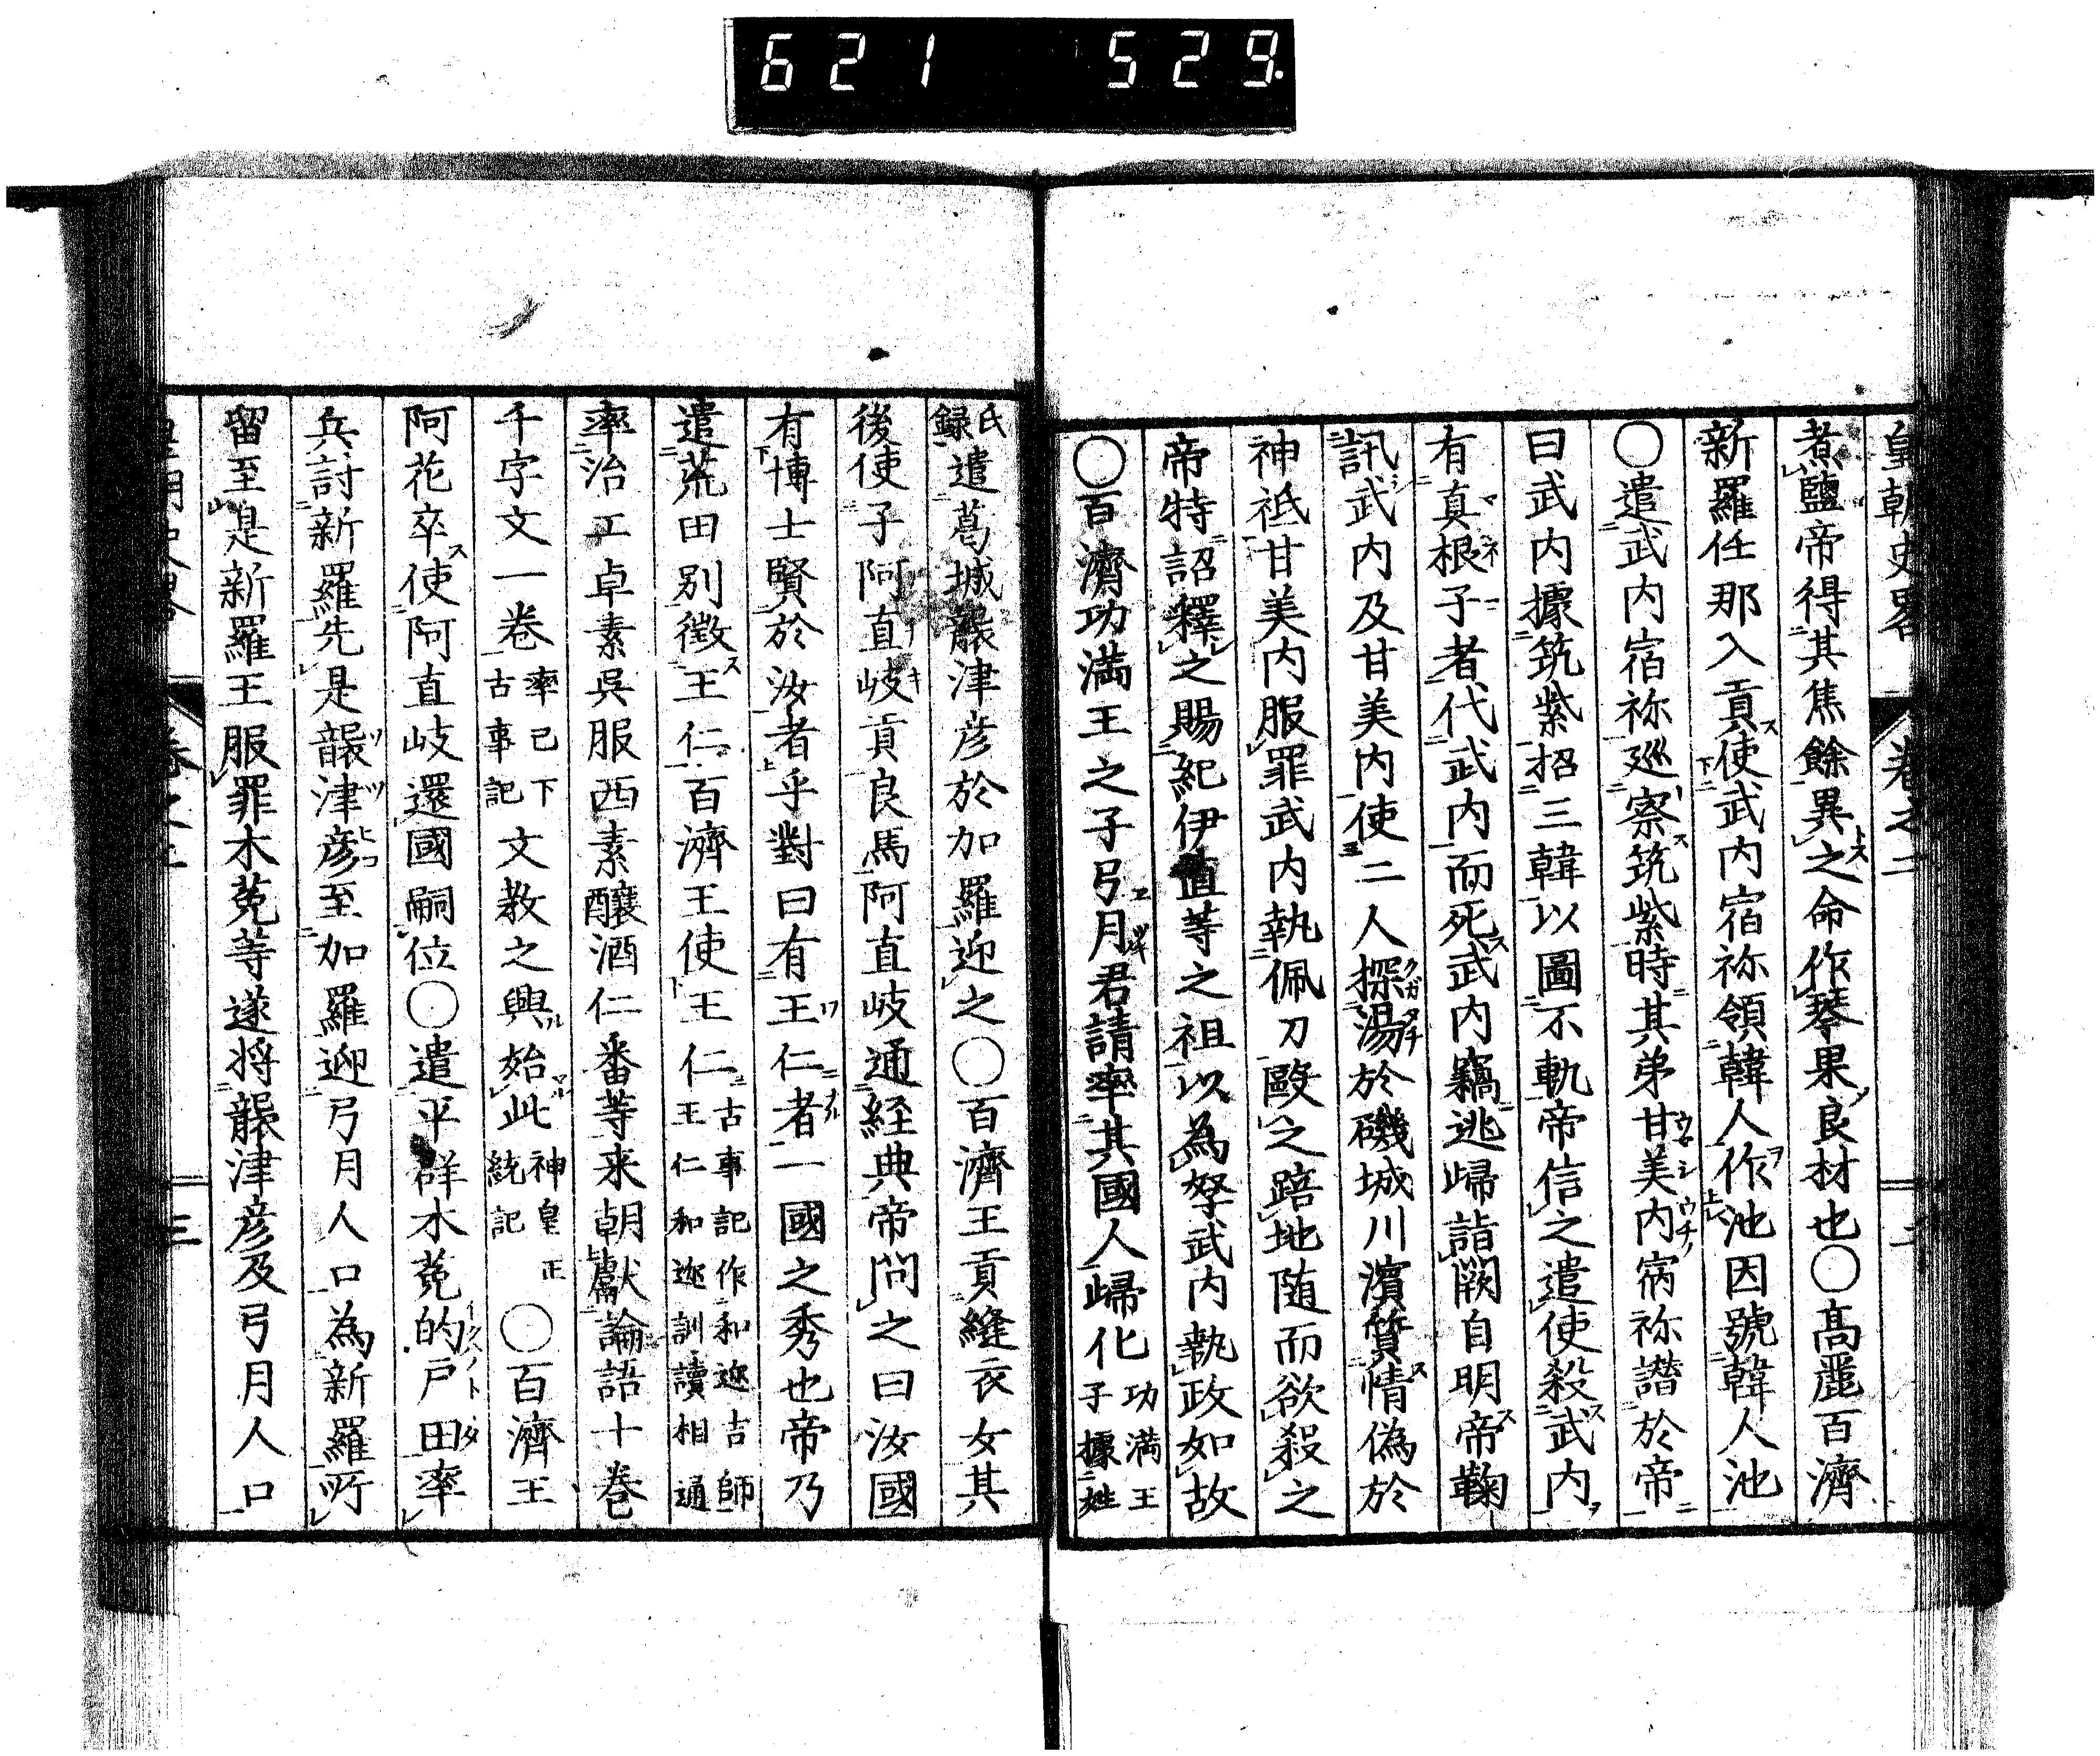 621 529.
皇朝史畧 卷之二
煮鹽帝得其焦餘異之命作琴果良材也〇高麗百濟
新羅任那入貢使武内宿祢領韓人作池因號韓人池
〇遣武内宿祢巡察筑紫時其弟甘美内宿祢譖於帝
曰武内據筑紫招三韓以圖不軌帝信之遣使殺武内
有真根子者代武内而死武内竊逃歸詣闕自明帝鞠
訊武内及甘美内使二人探湯於磯城川濱質情偽於
神祇甘美内服罪武内執佩刀毆之踣地随而欲殺之
帝特詔釋之賜紀伊直等之祖以為孥武内執政如故
〇百濟功満王之子弓月君請率其國人歸化功満王子據姓
氏録遣葛城襲津彦於加羅迎之〇百濟王貢縫衣女其
後使子阿直岐貢良馬阿直岐通経典帝問之曰汝國
有博士賢於汝者乎對曰有王仁者一國之秀也帝乃
遣荒田別徴王仁百濟王使王仁古事記作和迩吉師王仁和迩訓讀相通
率治工卓素呉服西素釀酒仁番等来朝獻論語十巻
千字文一巻率已下古事記文教之興始此神皇正統記〇百濟王
阿花卒使阿直岐還國嗣位〇遣平群木菟的戸田率
兵討新羅先是襲津彦至加羅迎弓月人口為新羅所
留至是新羅王服罪木菟等遂将襲津彦及弓月人口
卷之二 三